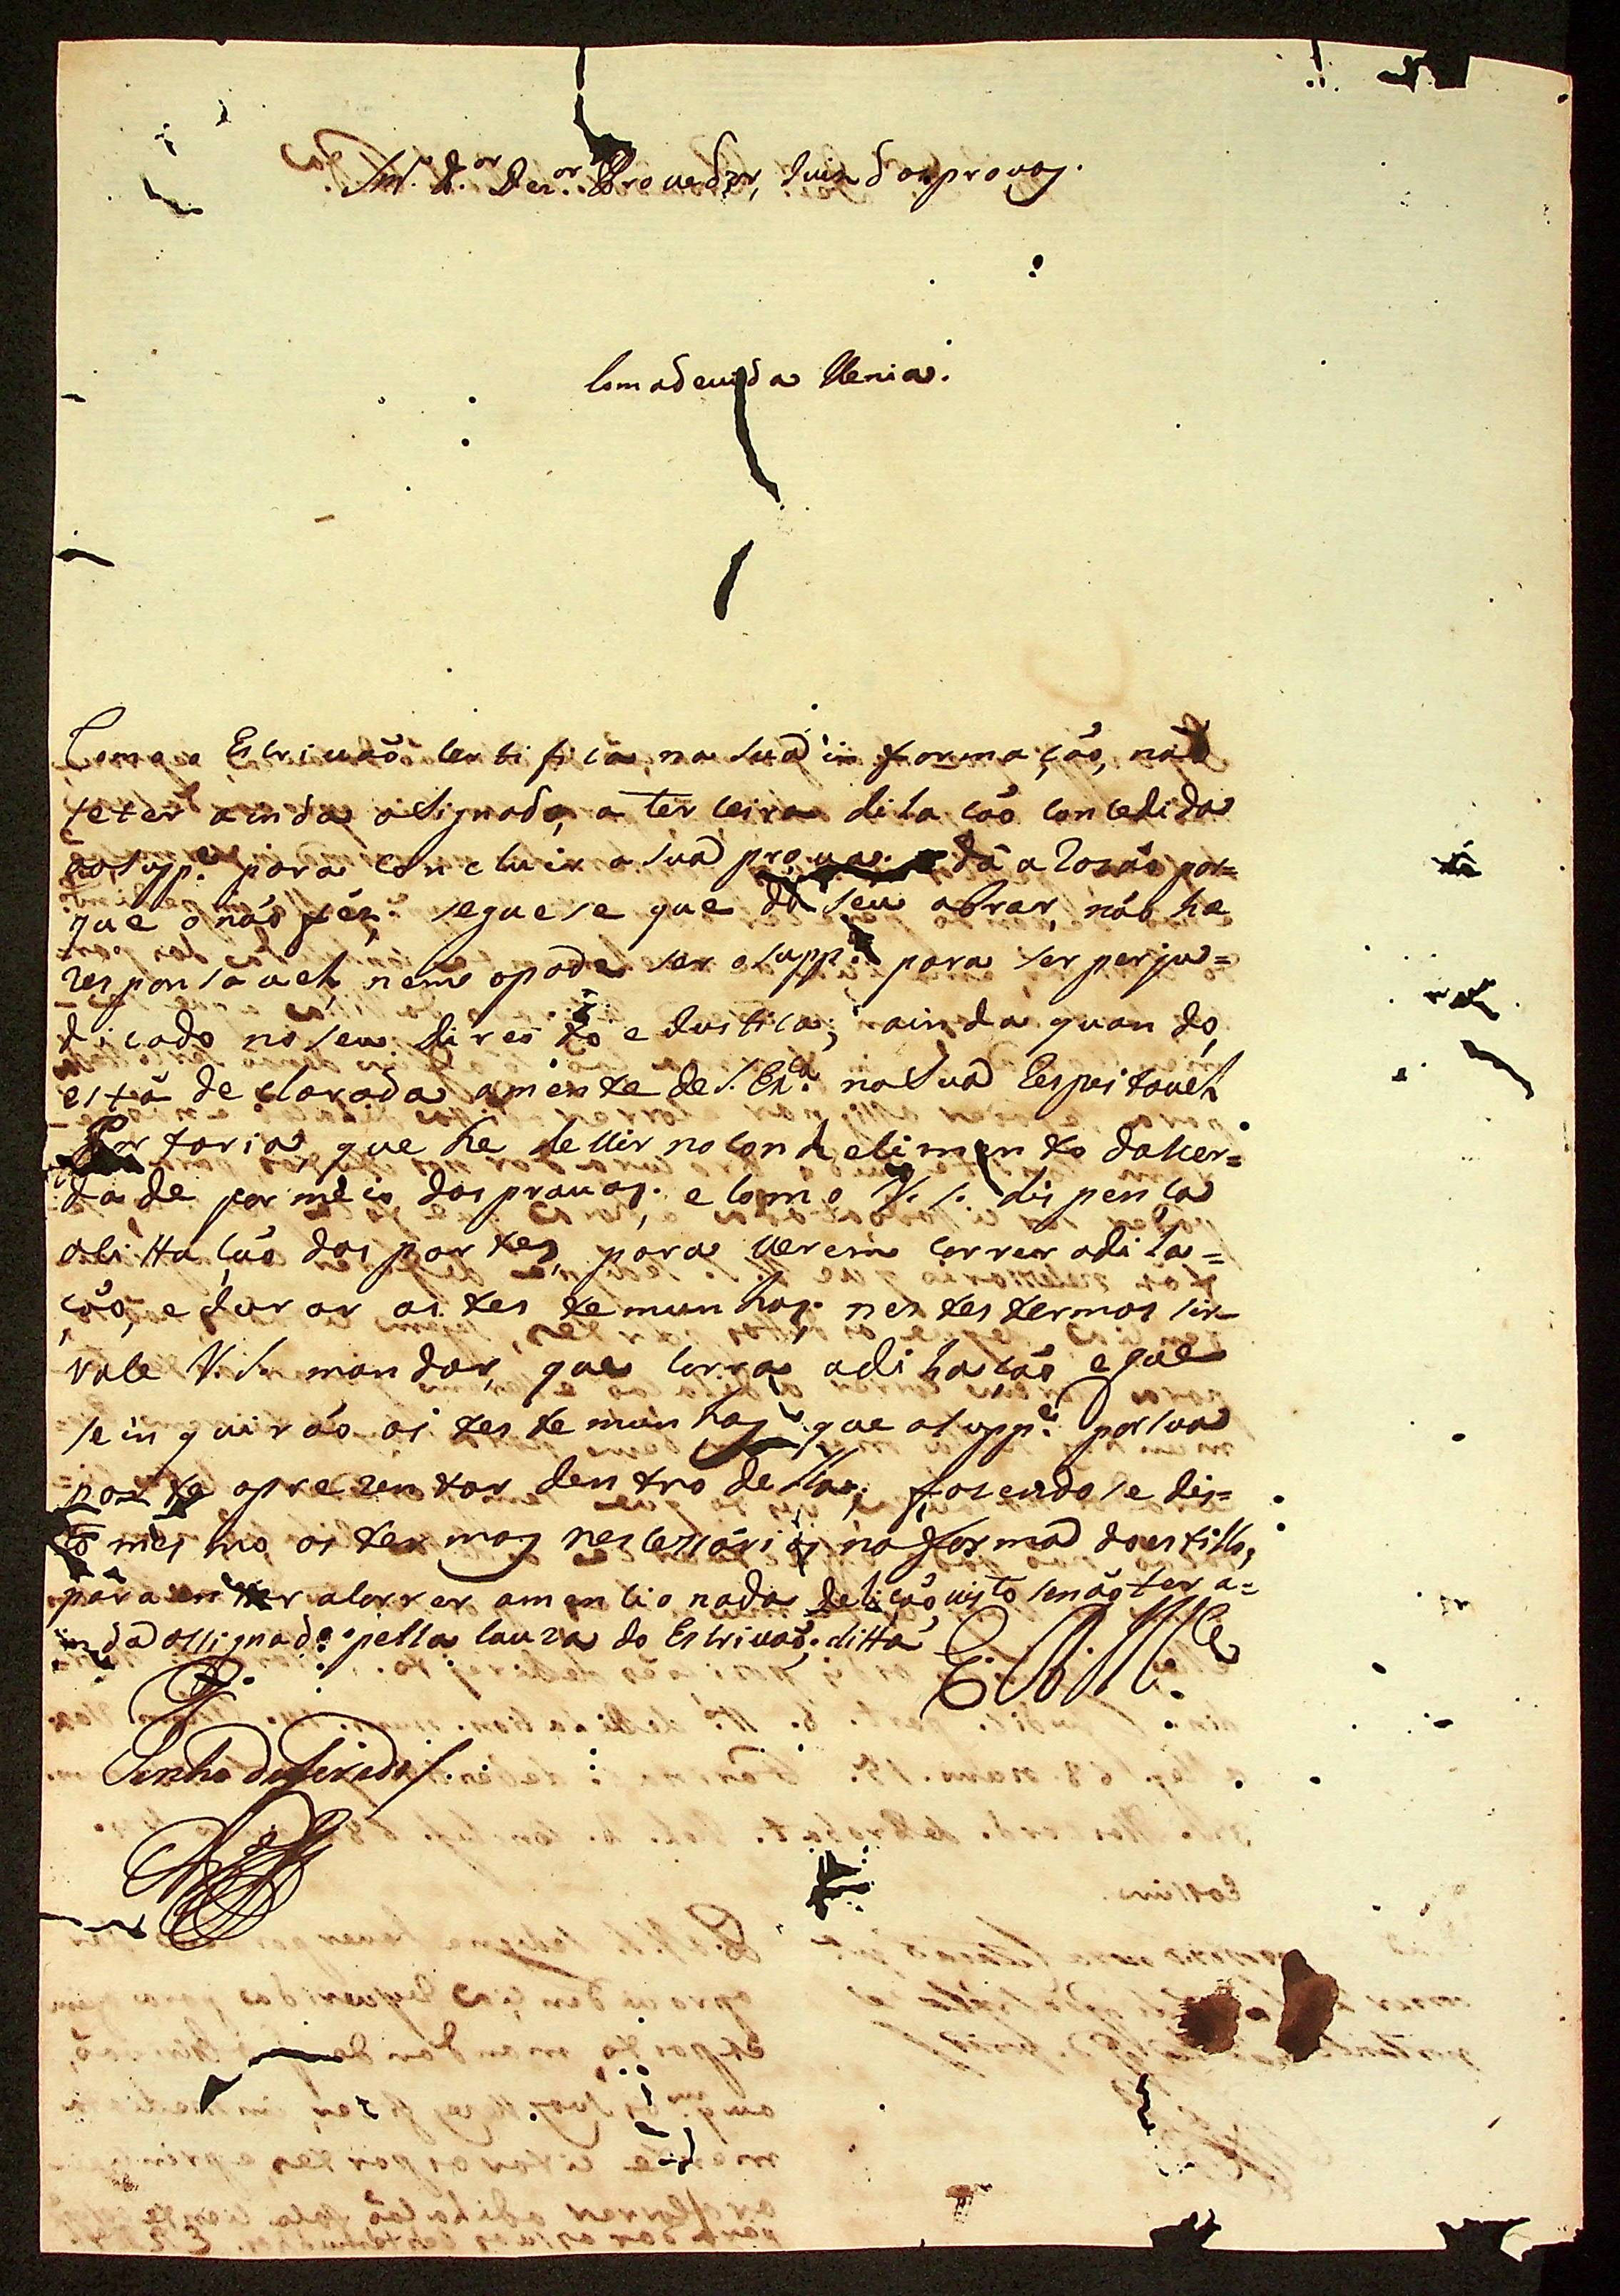 Snr. D.or Dez.or Provedor, Juiz das provas.
Com a devida Venia.
Como o Escrivaõ certifica, na sua informaçaõ, naõ
se ter ainda asignado, a terceira dilaçaõ concedida
ao supp.e para concluir a sua prova. dá a rozaõ por=
que o naõ féz: seguese que do seu obrar, naõ he
responsavel, nem o pode ser o supp.e para ser perju=
dicado no seu direito e Justica; ainda quando,
está declarada a mente de S. Ex.a na sua Respeitavel
Portaria, que he de vir no conhecimento da ver=
dade por meio das provas; e como V. S. dispensa
a cittaçaõ das partes, para verem correr a dila=
çaõ, e jurar as testemunhas. nestes termos sir
vase V. S. mandar, que corra a dilaçaõ e que
se inquiraõ as testemunhas, que o supp.e por sua
parte aprezentar dentro della; fazendose des=
to mesmo os termos nescessarios na forma do estillo,
para entrar a correr a mencionada dilaçaõ visto senaõ ter a=
inda assignado pella cauza do Escrivaõ ditta
E. R. M.ce
P.
Tenho deferido